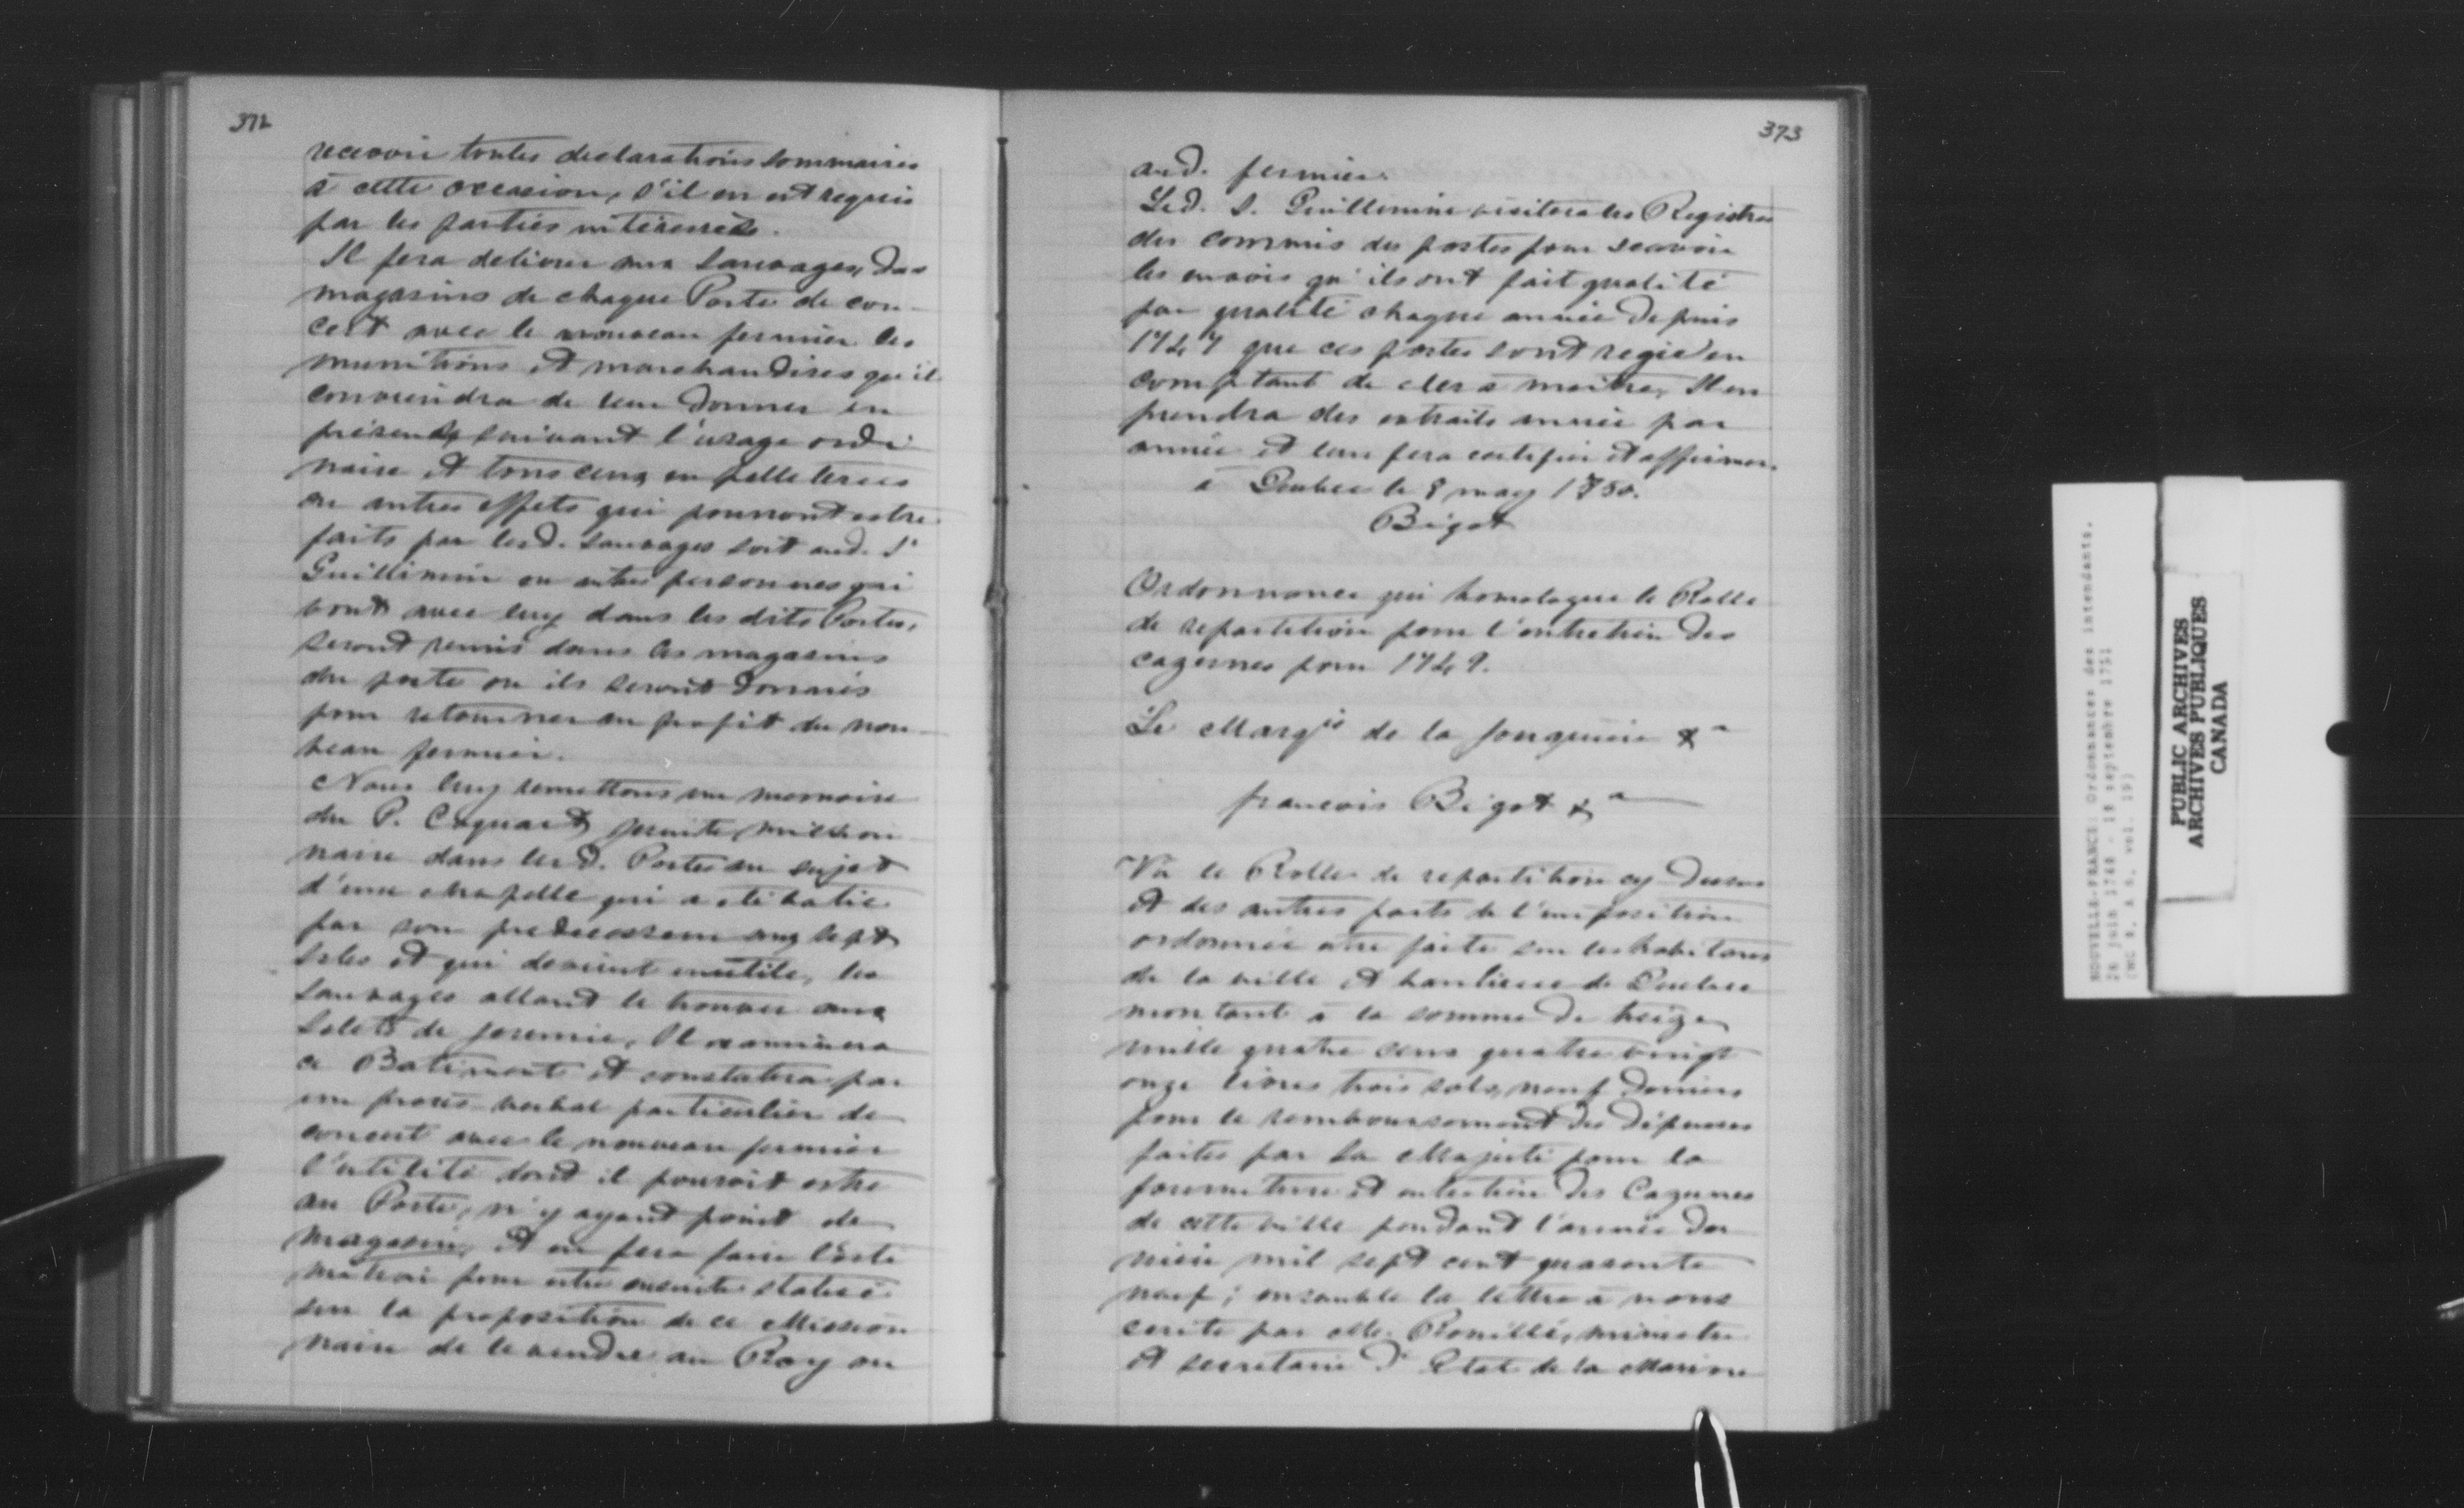 372
recevoir toutes declarations sommaires
à cette occasion, s'il en est requis
par les parties intéressés.
Il fera delivrer aux sauvages, des
magasins de chaque Poste de con-
cert avec le nouveau fermier les
munitions et marchandises qu'il
conviendra de leur donner en
présents suivant l'usage ordi
naire et tous ceux en pelleteries
ou autres effets qui pourront estre
faits par lesd. sauvages soit aud. Sr
Guillimin ou autres personnes qui
vont avec luy dans les dits Postes,
seront remis dans les magasins
du poste ou ils seront donnés
pour retourner au profit du nou-
veau fermier.
Nous luy remettons un memoire
du P. Coquart jesuite mission
naire dans lesd. Postes au sujet
d'une chapelle qui a été batie
par son predecesseur aux sept
Isles et qui devient inutile, les
sauvages allant le trouver aux
Islets de Jeremie, Il examinera
ce Batiment et constatera par
un procès verbal particulier de
concert avec le nouveau fermier
l'utilité dont il pouroit estre
au Poste, n'y ayant point de
magasin, et en fera faire l'esti
mation pour estre ensuite statué
sur la proposition de ce Mission
naire de le vendre au Roy ou
373
aud. fermier.
Led. S. Guillemine visitera les Registres
des commis des postes pour scavoir
les envois qu'ils ont fait qualité
par qualité chaque année depuis
1747 que ces postes sont regis en
comptant de clerc à maitre, Il en
prendra des extraits année par
année et leur fera certifier et affirmer.
à Quebec le 8 may 1750.
Bigot
Ordonnance qui homologue le Rolle
de repartition pour l'entretien des
cazernes pour 1749.
Le Marqis de la Jonquiere &a
francois Bigot &a
Vû le Rolle de repartition cy dessus
et des autres parts de l'imposition
ordonnée etre faite sur les habitans
de la ville et banlieue de Quebec
montant à la somme de treize
mille quatre cens quatre vingt
onze livres trois sols, neuf deniers
pour le remboursement des dépenses
faites par Sa Majesté pour la
fourniture et entretien des Cazernes
de cette ville pendant l'année der
niere mil sept cent quarante
neuf; ensemble la lettre à nous
ecrite par Mr. Rouillé, ministre
et secretaire d'Etat de la Marine
NOUVELLE-FRANCE: Ordonnances des intendants.
26 juin 1748 - 18 septembre 1751
PUBLIC ARCHIVES
ARCHIVES PUBLIQUES
CANADA